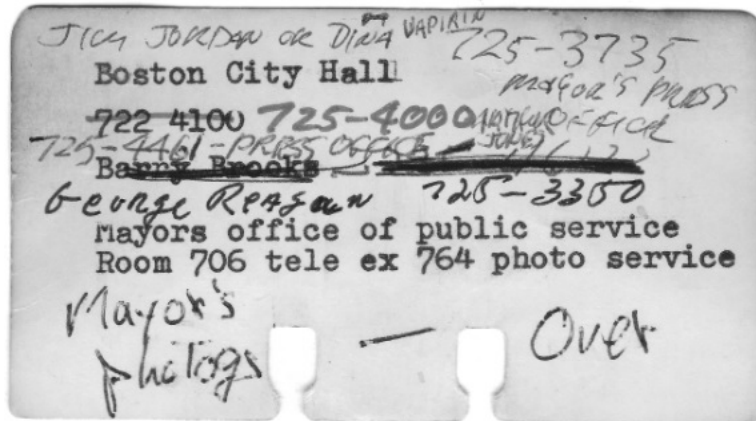 JICM JORDAN OR DINA VAPIRIN 725-3735
Boston City Hall
MAYOR'S PRESS
722 4100 725-4000 OFFICE
725-4461-PRESS OFFICE
Barry Brooks
George REAgan 725-3350
Mayors office of public service
Room 706 tele ex 764 photo service
Mayor's
photogs — Over